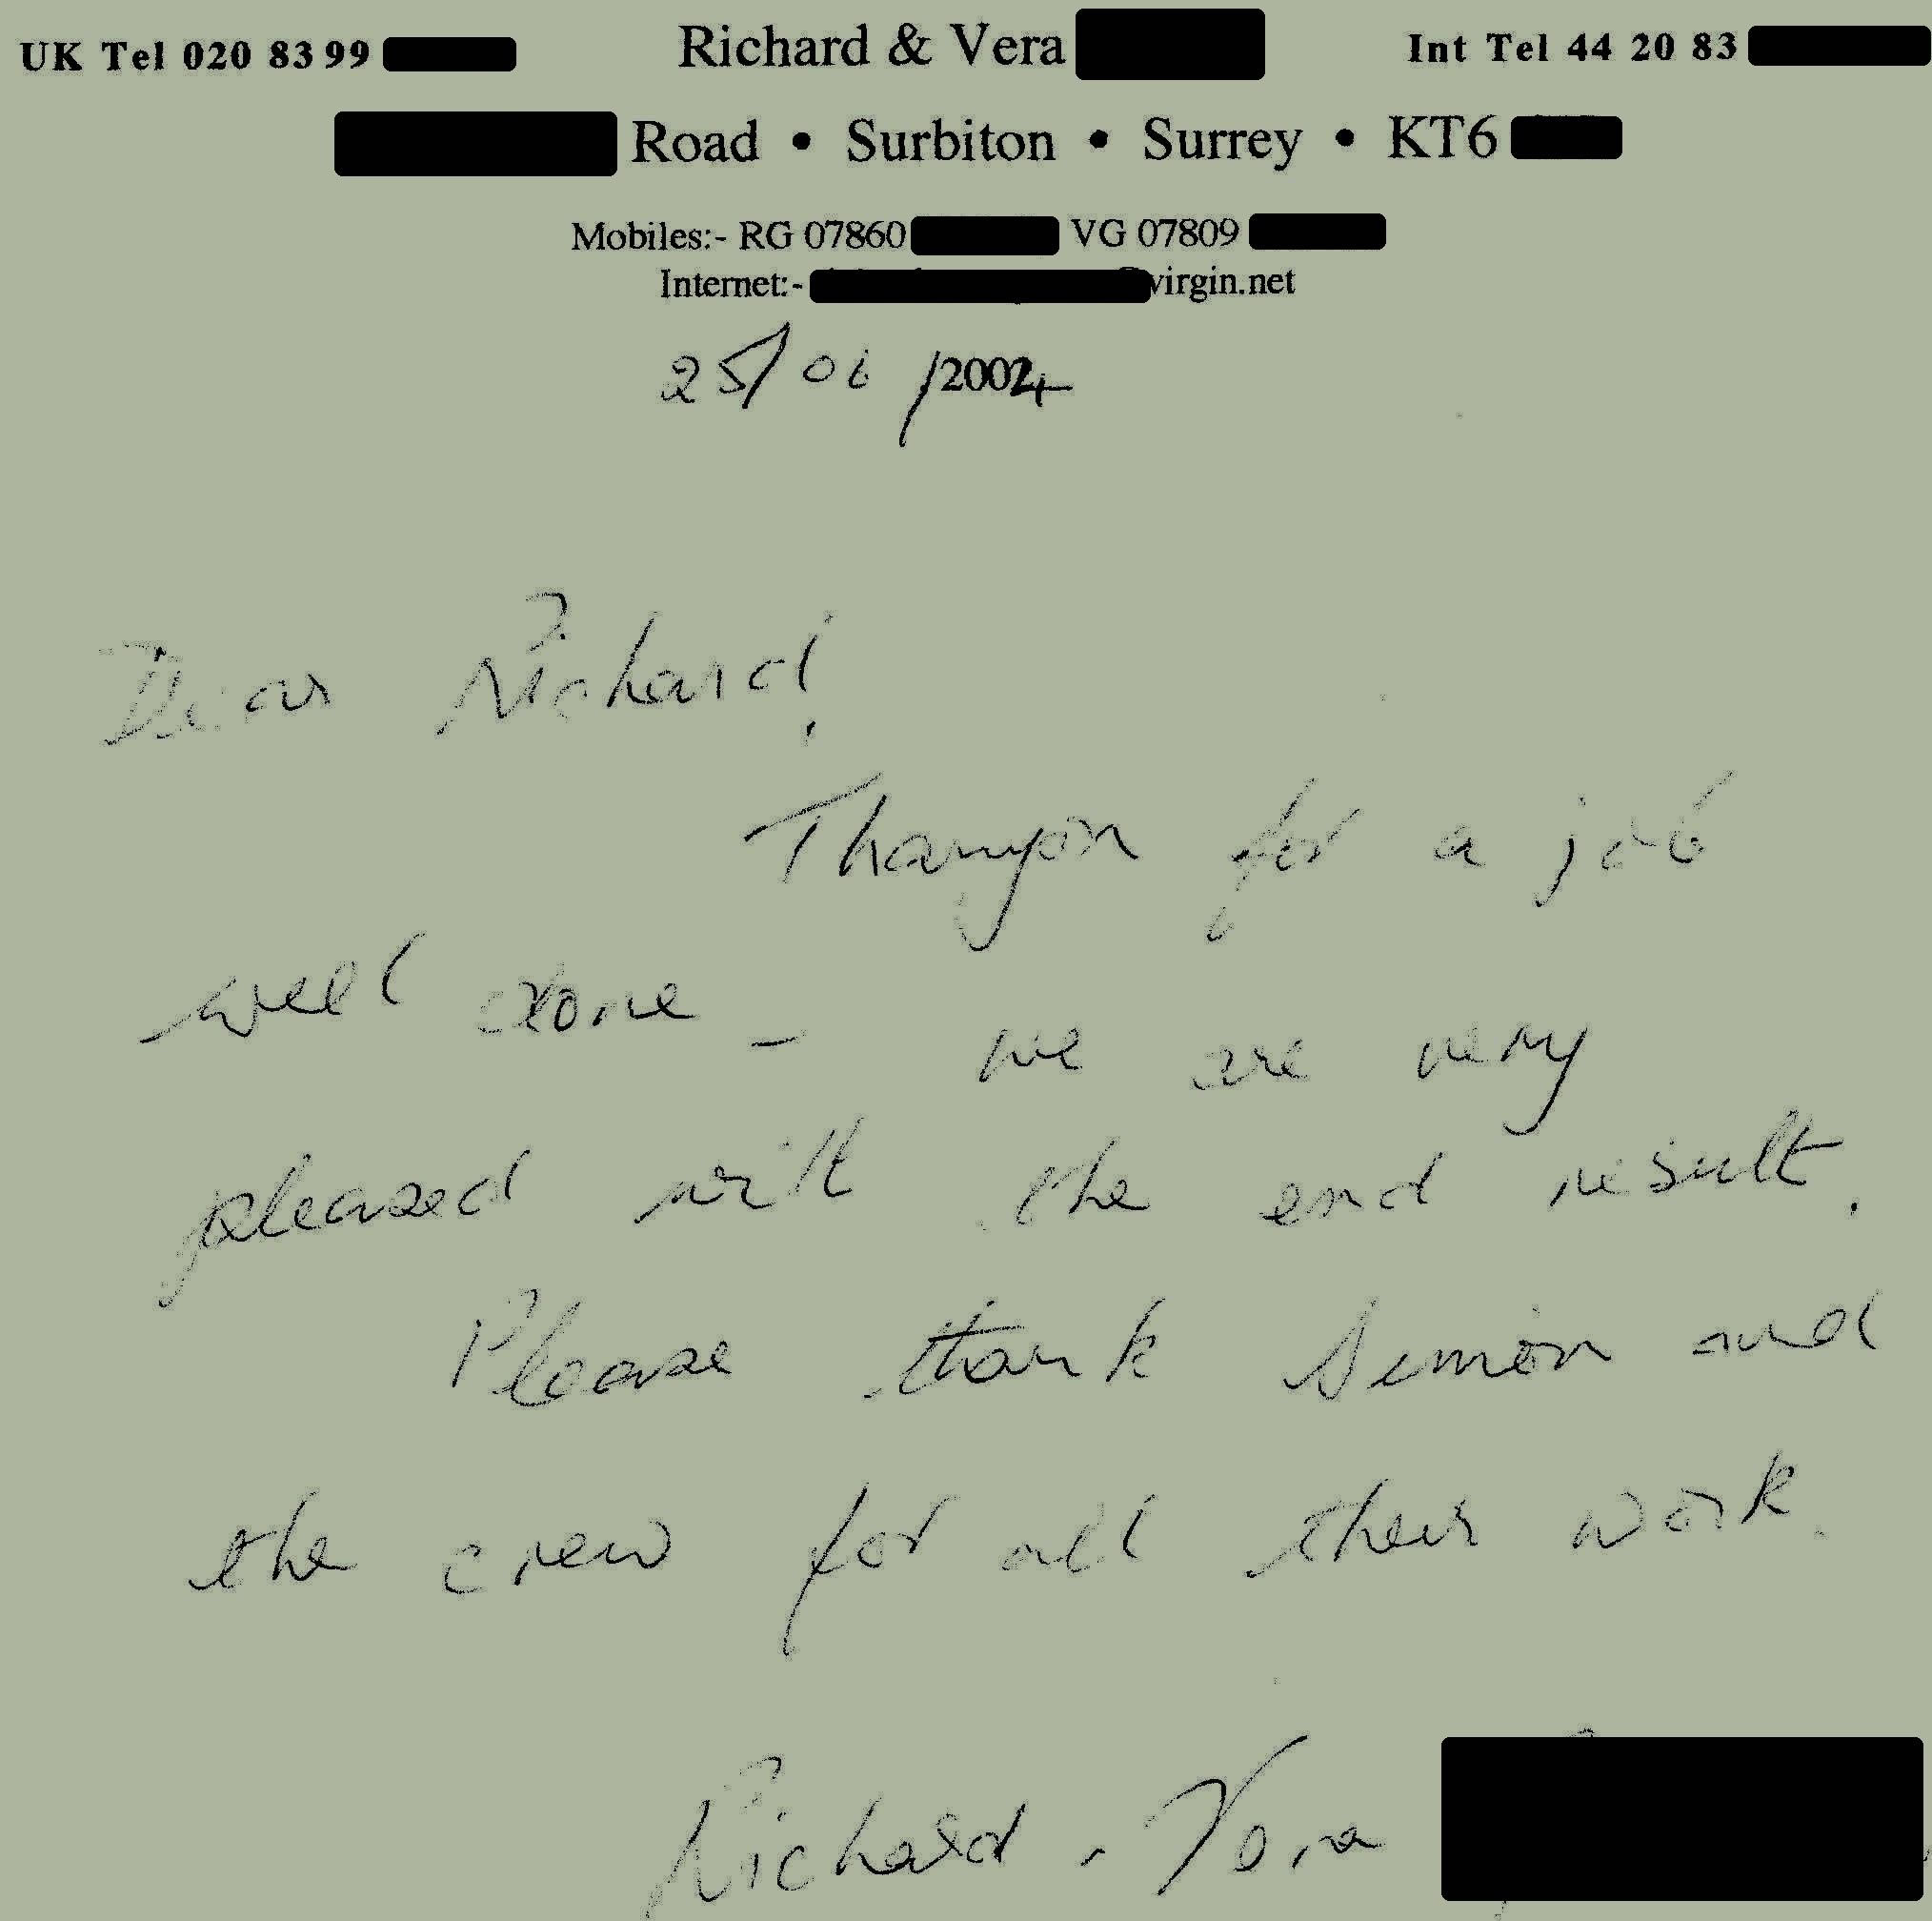 UK Tel 020 8399 Richard & Vera Int Tel 44 20 83
Road • Surbiton • Surrey • KT6
Mobiles:- RG 07860 VG 07809
Internet:- virgin.net
25/06/2004
Dear Richard,
Thankyou for a job
well done - we are very
pleased with the end result.
Please thank Simon and
the crew for all their work.
Richard & Vera